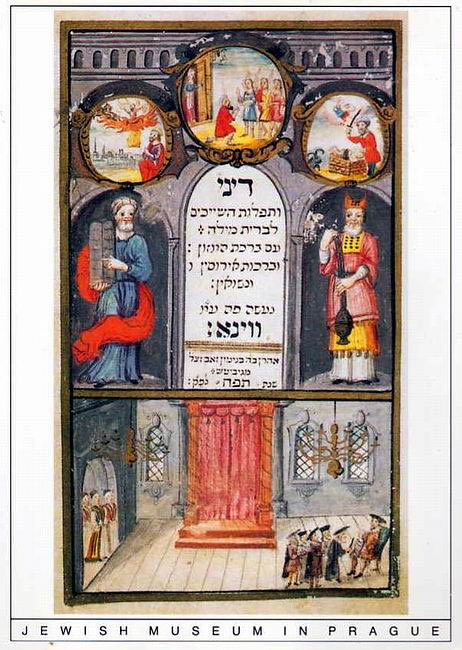 דיני
ותפלות השייכים
לברית מילה
עם ברכת המזון :
וברכות אירוסין ו
ונשואין:
נעשה פה
ווינא:
אהרן בה בנימין זאב זצל
מגיביטש
שנת תפה לפק:
JEWISH MUSEUM IN PRAGUE